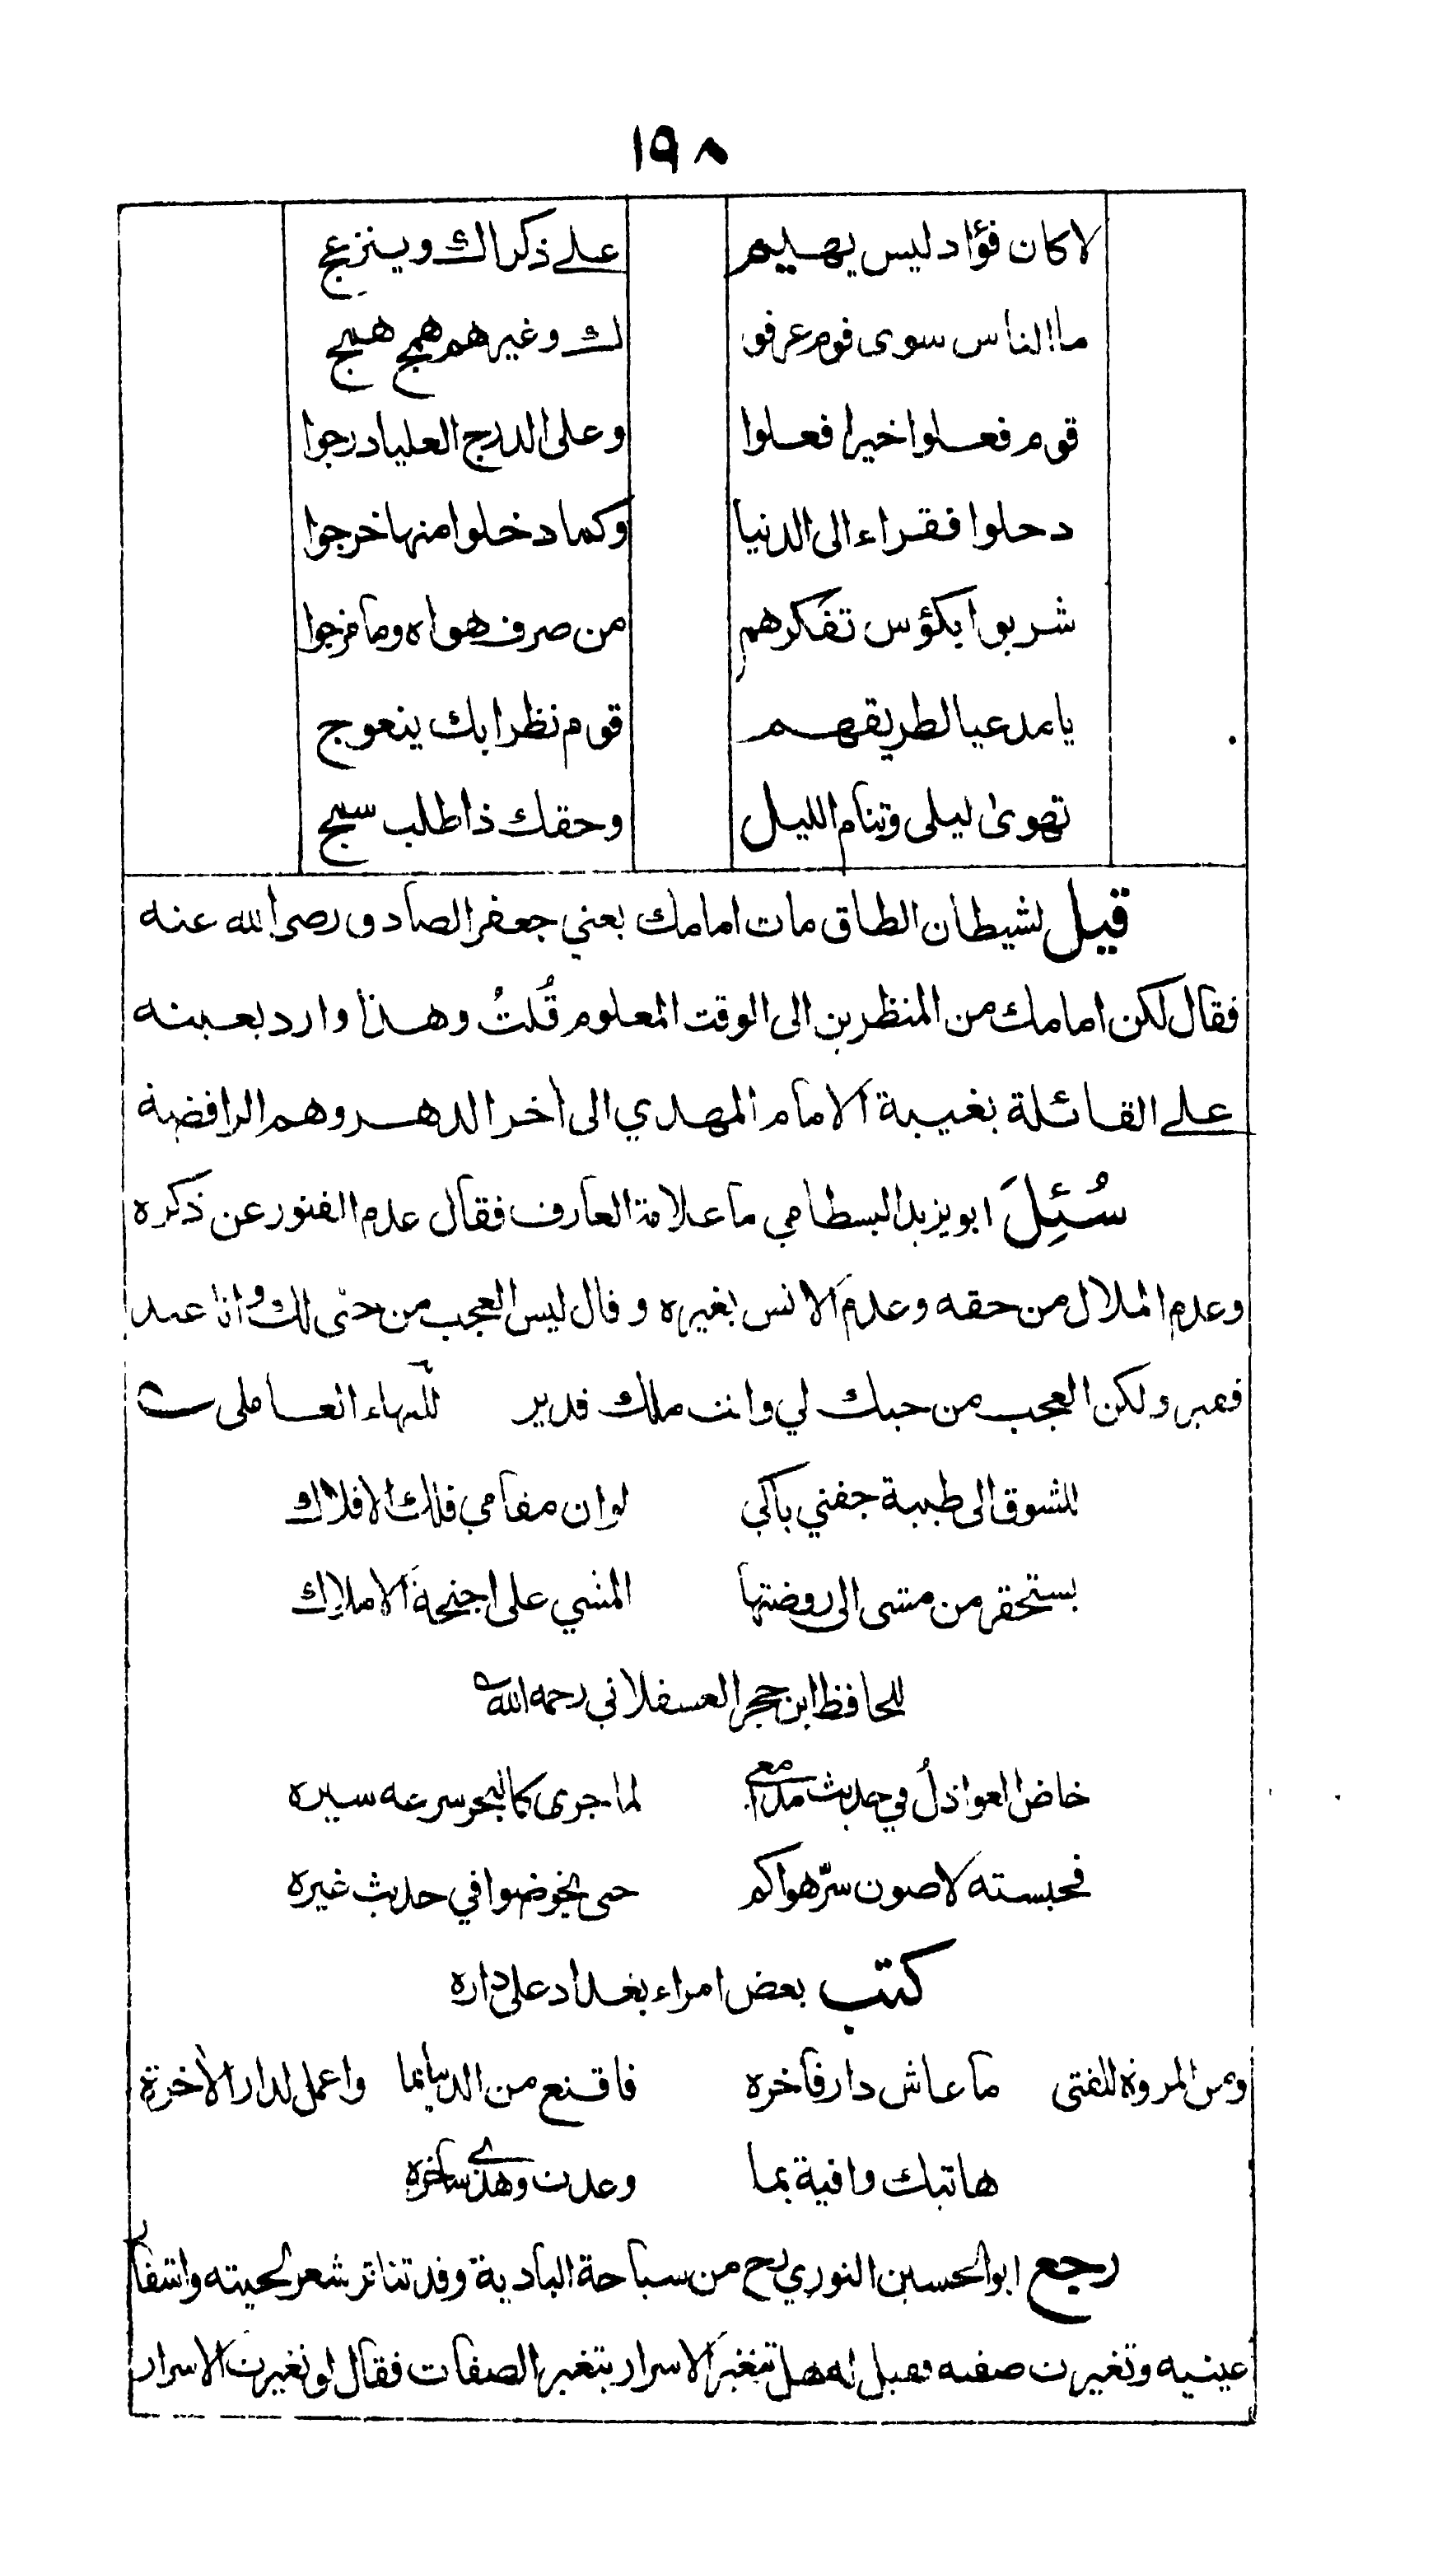 ١٩٨
لا كان فؤاد ليس يهيم على ذكراك وينزعج
ما الناس سوى قوم عرفو ك وغيرهم همج همج
قوم فعلوا خيرا فعلوا وعلى الدرج العليا درجوا
دخلوا فقراء الى الدنيا وكما دخلوا منها خرجوا
شربوا بكؤس تفكرهم من صرف هواه وما مزجوا
يا مدعيا لطريقهم قوم نظرا بك ينعوج
تهوى ليلى وتنام الليل وحقك ذا طلب سمج
قيل لشيطان الطاق مات امامك يعني جعفر الصادق رضى الله عنه
فقال لكن امامك من المنظرين الى الوقت المعلوم قُلتُ وهذا وارد بعينه
على القائلة بغيبة الامام المهدي الى أخر الدهر وهم الرافضة
سُئِلَ ابو يزيد البسطامي ما علامة العارف فقال عدم الفتور عن ذكره
وعدم الملال من حقه وعدم الانس بغيره وقال ليس العجب من حبى لك وانا عبد
فقير ولكن العجب من حبك لي وانت ملك قدير للبهاء العاملى
للشوق الى طيبة جفني باكي لو ان مقامي فلك الافلاك
يستحقر من مشى الى روضتها المشي على اجنحة الاملاك
للحافظ ابن حجر العسقلاني رحمه الله
خاض العواذلُ في حديث مدامعي لما جرى كالبحر سرعه سيره
فحبسته لاصون سرّ هواكم حتى يخوضوا في حديث غيره
كتب بعض امراء بغداد على داره
ومن المروة للفتى ما عاش دار فاخره فاقنع من الدنيا بها واعمل لدار الأخرة
هاتيك وافية بما وعدت وهذي ساخره
رجع ابو الحسين النوري رح من سياحة البادية وقد تناثر شعر لحيته واشفار
عينيه وتغيرت صفته فقيل له هل تتغير الاسرار بتغير الصفات فقال لو تغيرت الاسرار